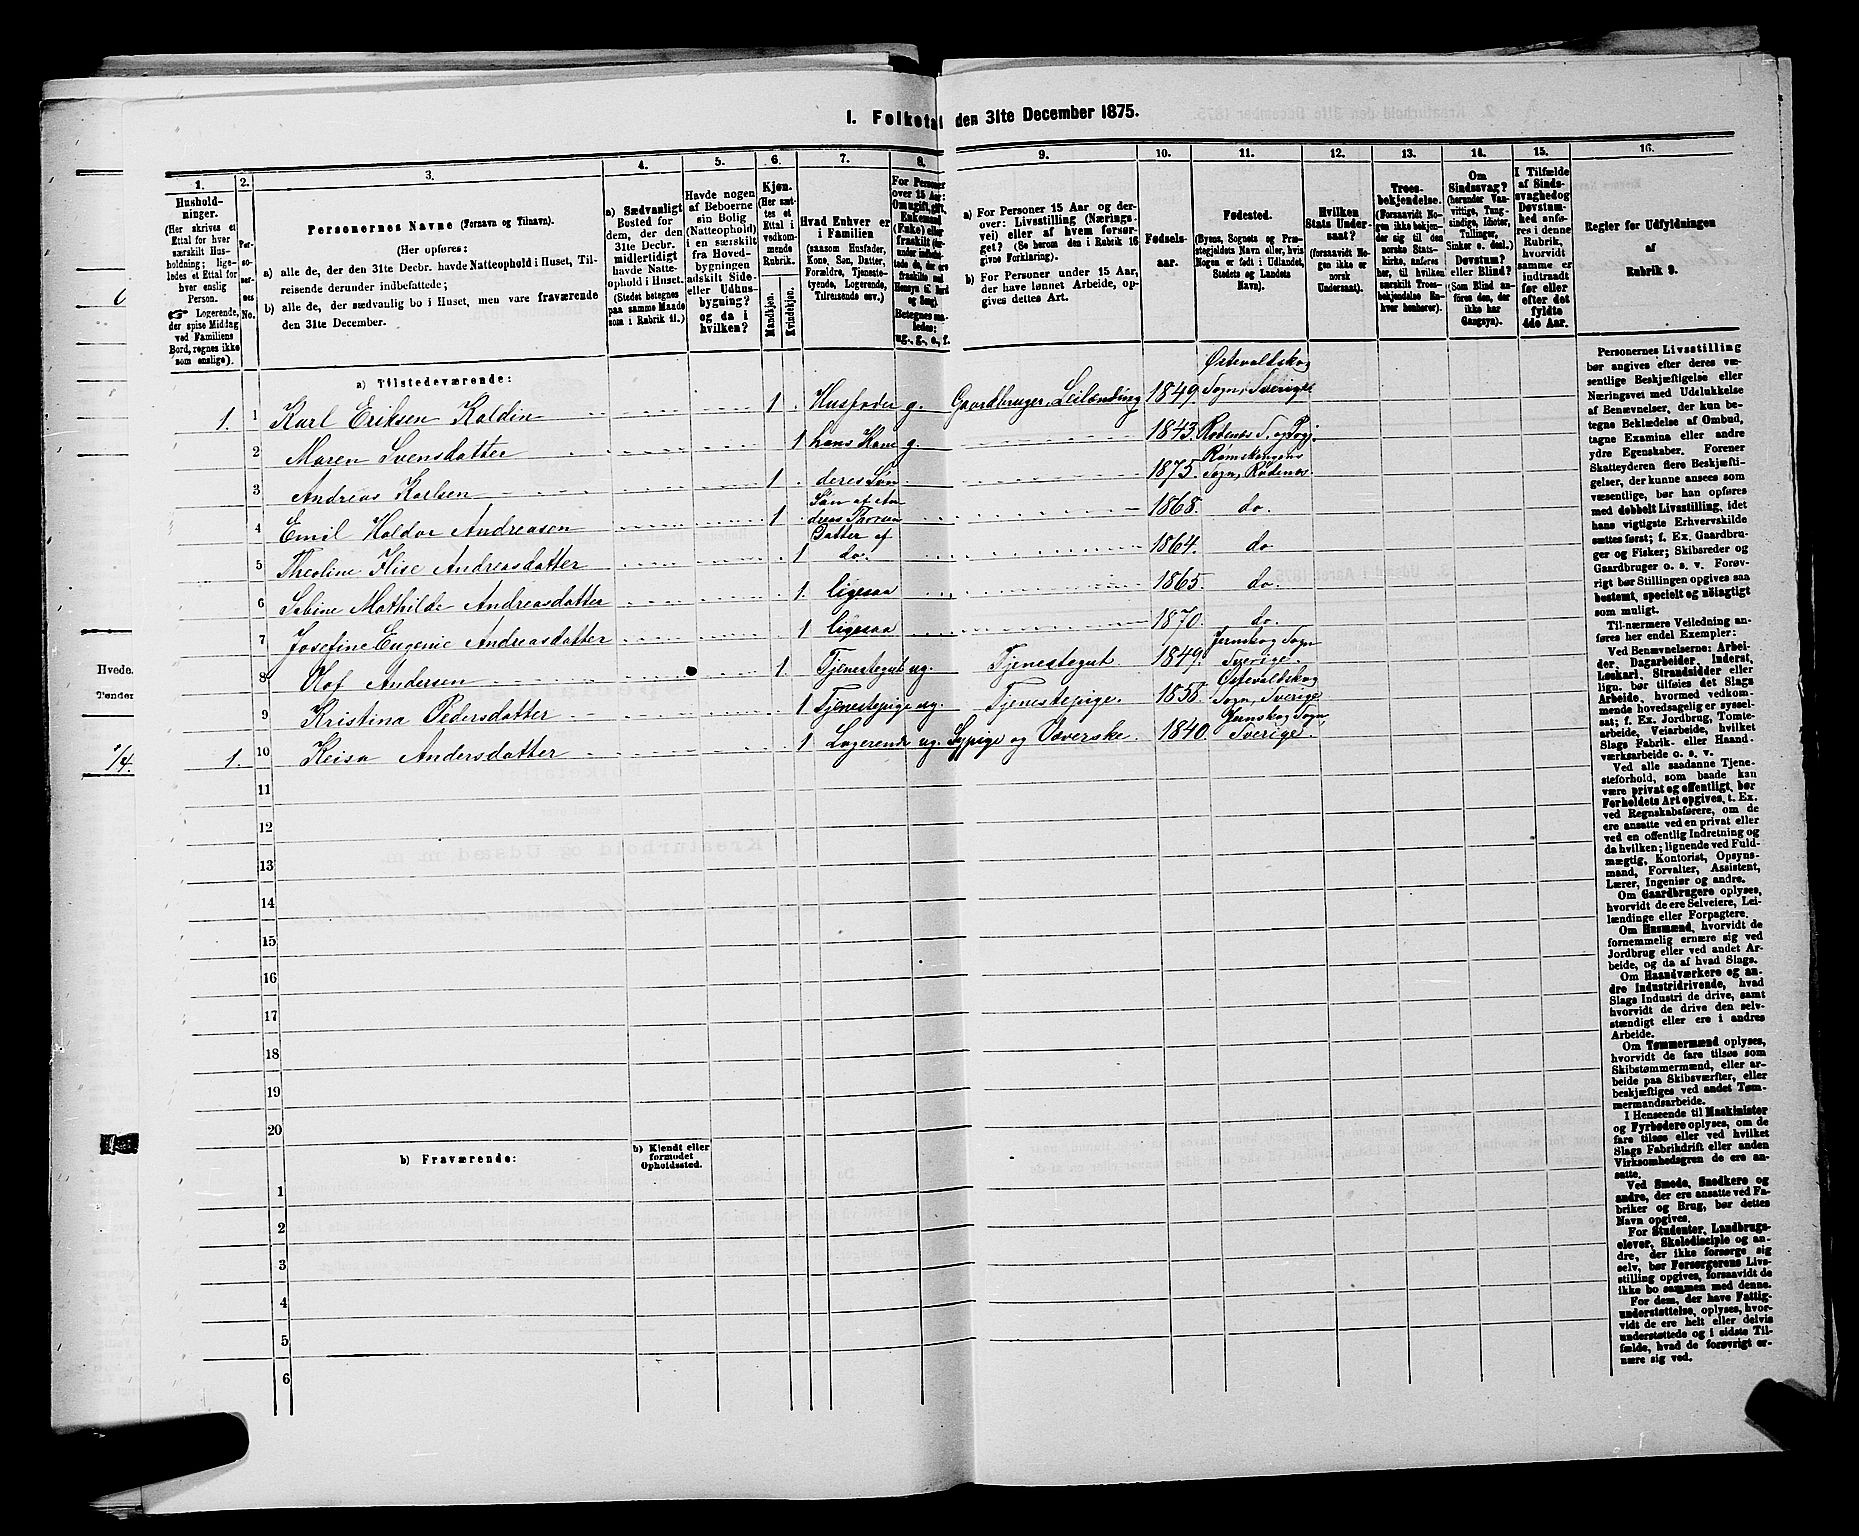 I. Folketal den 31te December 1875.
1. 2. 3. 4. 5. 6. 7. 8. 9. 10. 11. 12. 13. 14. 15. 16.
Hushold-
ninger.
(Her skrives et
Ettal for hver
særskilt Hus-
holdning; lige-
ledes et Ettal for
hver enslig
Person.
☛ Logerende,
der spise Middag
ved Familiens
Bord, regnes ikke
som enslige).
Per-
so-
ner-
nes
No.
Personernes Navne (Fornavn og Tilnavn).
(Her opføres:
a) alle de, der den 31te Decbr. havde Natteophold i Huset, Til-
reisende derunder indbefattede;
b) alle de, der sædvanlig bo i Huset, men vare fraværende
den 31te December.
a) Sædvanligt
Bosted for
dem, der den
31te Decbr.
midlertidigt
havde Natte-
ophold i Huset.
(Stedet betegnes
paa samme Maade
som i Rubrik 11.)
Havde nogen
af Beboerne
sin Bolig
(Natteophold)
i en særskilt
fra Hoved-
bygningen
adskilt Side-
eller Udhus-
bygning?
og da i
hvilken?
Kjøn.
(Her sæt-
tes et
Ettal i
vedkom-
mende
Rubrik.
Mandkjøn.
Kvindekjøn.
Hvad Enhver er
i Familien
(saasom Husfader,
Kone, Søn, Datter,
Forældre, Tjeneste-
tyende, Logerende,
Tilreisende osv.)
For Personer
over 15 Aar:
Om ugift, gift,
Enkemand
(Enke) eller
fraskilt
Betegnes saa-
ledes:
ug., g., e., f.
a) For Personer 15 Aar og der-
over: Livsstilling (Nærings-
vei) eller af hvem forsør-
get? (Se herom den i Rubrik 16
givne Forklaring).
b) For Personer under 15 Aar,
der have lønnet Arbeide, op-
gives dettes Art.
Fødsels-
aar.
Fødested.
(Byens, Sognets og Præ-
stegjeldets Navn eller, hvis
Nogen er født i Udlandet,
Stedets og Landets
Navn).
Hvilken
Stats Under-
saat?
(forsaavidt No-
gen ikke er
norsk
Undersaat).
Troes-
bekjendelse.
(Forsaavidt No-
gen ikke bekjen-
der sig til den
norske Stats-
kirke, anføres
her, til hvilken
særskilt Troes-
bekjendelse En-
hver henhører).
Om
Sindssvag?
(herunder Van-
vittige, Tung-
sindige, Idioter,
Tullinger,
Sinker o. desl.)
Døvstum?
eller Blind?
(Som Blind an-
føres den, der
ikke har
Gangsyn).
I Tilfælde
af Sinds-
svaghed og
Døvstum-
hed anfø-
res i denne
Rubrik,
hvorvidt
samme er
indtraadt
før eller
efter det
fyldte
4de Aar.
Regler for Udfyldningen
af
Rubrik 9.
a) Tilstedeværende:
1. 1 Karl Eriksen Koldin 1 Husfader g. Gaardbruger, Leilænding 1849. Østevaldskog Sogn, Sverige
2 Maren Svensdatter 1 hans Kone g. 1843. Rødenæs S. og Prgj.
3 Andreas Karlsen 1 deres Søn 1875. Rømskougens Sogn, Rødenæs
4 Emil Haldor Andreasen 1 Søn af An dreas Thorsen 1868. do.
5 Theoline Elise Andreasdatter 1 Datter af do. 1864. do
6 Sabine Mathilde Andreasdatter 1 ligesaa 1865 do.
7 Josefine Eugenie Andreasdatter 1 ligesaa 1870 do.
8 Olof Andersen 1 Tjenestegut ug. Tjenestegut 1849. Jernskog Sogn Sverige.
9 Kristina Pedersdatter 1 Tjenestepige ug. Tjenestepige. 1858 Østevaldskog Sogn, Sverige
1. 10 Keisa Andersdatter 1 Logerende ug. Sypige og Væverske. 1840 Jernskog Sogn, Sverige.
11
12
13
14
15
16
17
18
19
20
b) Fraværende:
b) Kjendt eller
formodet
Opholdssted.
1
2
3
4
5
6
Hvede.
Tønder
1/4.
Personernes Livsstilling
bør angives efter deres væ-
sentlige Beskjæftigelse eller
Næringsvei med Udelukkelse
af Benævnelser, der kun be-
tegne Beklædelse af Ombud,
tagne Examina eller andre
ydre Egenskaber. Forener
Skatteyderen flere Beskjæfti-
gelser, der kunne ansees som
væsentlige, bør han opføres
med dobbelt Livsstilling, idet
hans vigtigste Erhvervskilde
sættes først; f. Ex. Gaardbru-
ger og Fisker; Skibsreder og
Gaardbruger o. s. v. Forøv-
rigt bør Stillingen opgives saa
bestemt, specielt og nöiagtigt
som muligt.
Til nærmere Veiledning an-
føres her endel Exempler:
Ved Benævnelserne: Arbei-
der, Dagarbeider, Inderst,
Løskarl, Strandsidder eller
lign. bør tilføies det Slags
Arbeide, hvormed vedkom-
mende hovedsagelig er syssel-
sat; f. Ex. Jordbrug, Tomte-
arbeide, Veiarbeide, hvilket
Slags Fabrik- eller Haand-
værksarbeide o. s. v.
Ved alle saadanne Tjene-
steforhold, som baade kan
være privat og offentligt, bør
Forholdets Art opgives, t. Ex.
ved Regnskabsførere, om de
ere ansatte ved en privat eller
ved en offentlig Indretning og
da hvilken; lignende ved Fuld-
mægtig, Kontorist, Opsyns-
mand, Forvalter, Assistent,
Lærer, Ingeniør og andre.
Om Gaardbrugere oplyses,
hvorvidt de ere Selveiere, Lei-
lændinge eller Forpagtere.
Om Husmænd, hvorvidt de
fornemmelig ernære sig ved
Jordbrug eller ved andet Ar-
beide, og da af hvad Slags.
Om Haandværkere og an-
dre Industridrivende, hvad
Slags Industri de drive, samt
hvorvidt de drive den selv-
stændigt eller ere i andres
Arbeide.
Om Tømmermænd oplyses,
hvorvidt de fare tilsøs som
Skibstømmermænd, eller ar-
beide paa Skibsværfter, eller
beskjæftiges ved andet Tøm-
mermandsarbeide.
I Henseende til Maskinister
og Fyrbødere oplyses, om de
fare tilsøs eller ved hvilket
Slags Fabrikdrift eller anden
Virksomhedsgren de ere an-
satte.
Ved Smede, Snedkere og
andre, der ere ansatte ved Fa-
briker og Brug, bør dettes
Navn opgives.
For Studenter, Landbrugs-
elever, Skoledisciple og an-
dre, der ikke forsørge sig
selv, bør Forsørgerens Livs-
stilling opgives, forsaavidt de
ikke bo sammen med denne.
For dem, der have Fattig-
understøttelse, oplyses, hvor-
vidt de ere helt eller delvis
understøttede og i sidste Til-
fælde, hvad de forøvrigt er-
nære sig ved.